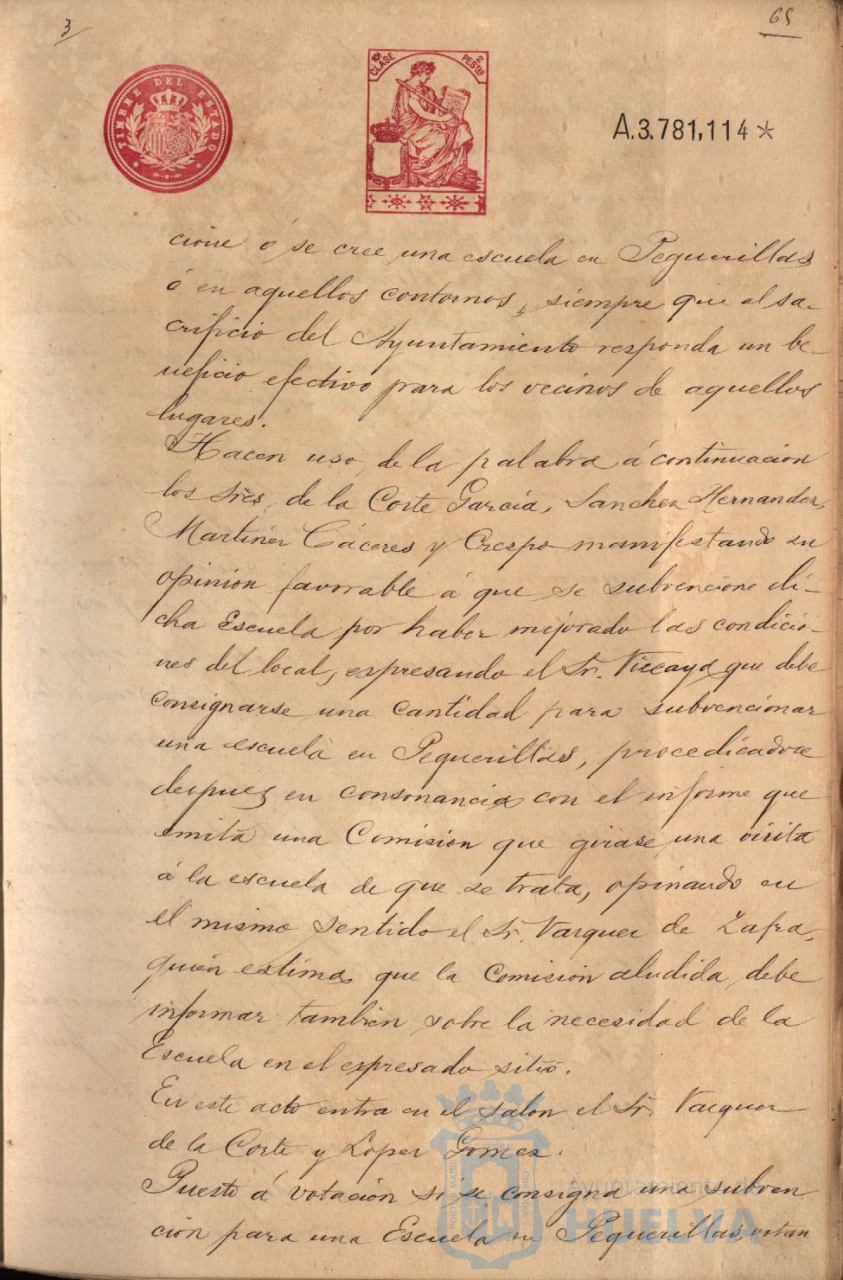 3
65
TIMBRE DEL ESTADO
10ª CLASE
2 PESTAS
A.3.781,114*
cione ó se cree una escuela en Peguerillas
ó en aquellos contornos, siempre que al sa-
crificio del Ayuntamiento responda un be-
neficio efectivo para los vecinos de aquellos
lugares.
Hacen uso de la palabra á continuacion
los Sres. de la Corte García, Sanchez Hernandez,
Martinez Cáceres y Crespo manifestando su
opinion favorable á que se subvencione di-
cha Escuela por haber mejorado las condicio-
nes del local, expresando el Sr. Vizcaya que debe
consignarse una cantidad para subvencionar
una escuela en Peguerillas, procediendose
despues en consonancia con el informe que
emita una Comision que girase una visita
á la escuela de que se trata, opinando en
el mismo sentido el Sr. Vazquez de Zafra,
quien estima que la Comision aludida debe
informar tambien sobre la necesidad de la
Escuela en el expresado sitio.
En este acto entra en el salon el Sr. Vazquez
de la Corte y Lopez Gomez.
Puesto á votacion si se consigna una subven
cion para una Escuela en Peguerillas, votan
Ayuntamiento de
HUELVA